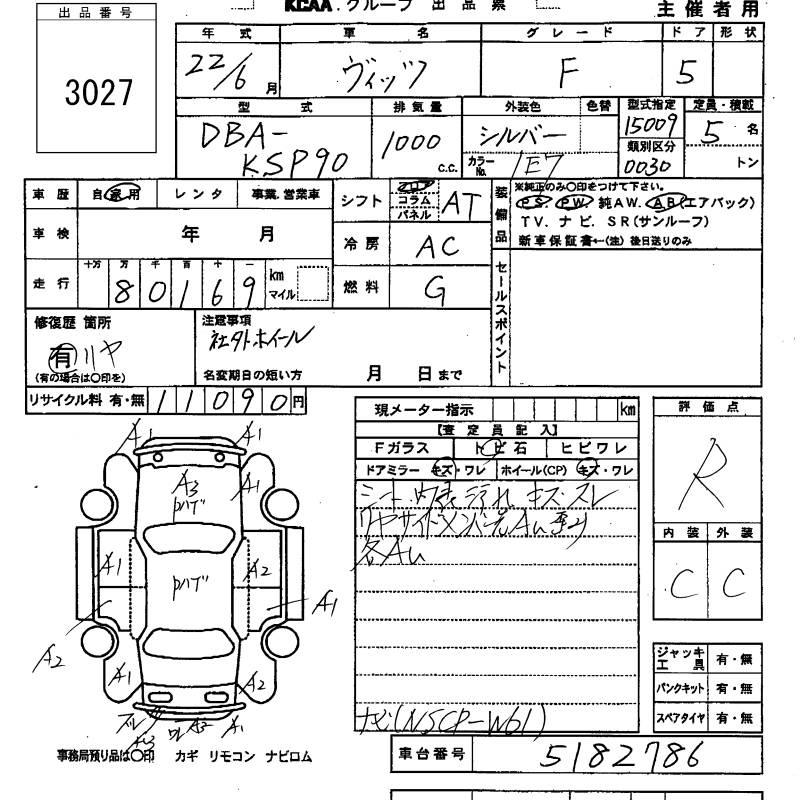 KCAA.グループ 出品票
主催者用
出品番号
3027
年式 車名 グレード ドア 形状
22/6月 ヴィッツ F 5
型式 排気量 外装色 色替 型式指定 定員・積載
DBA-KSP90 1000 c.c. シルバー 15009 5名
カラーNo. 1E7 類別区分 0030 トン
車歴 自家用 レンタ 事業.営業車
車検 年 月
走行 十万 万 千 百 十 一
80169 km マイル
シフト フロア コラム パネル AT
冷房 AC
燃料 G
装備品
※純正のみ○印をつけて下さい。
PS PW 純AW. AB(エアバック)
TV. ナビ. SR(サンルーフ)
新車保証書←(注) 後日送りのみ
セールスポイント
修復歴 箇所
有 リヤ
(有の場合は○印を)
注意事項
社外ホイール
名変期日の短い方 月 日まで
リサイクル料 有・無 11090円
現メーター指示 km
【査定員記入】
Fガラス トビ石 ヒビワレ
ドアミラー キズ・ワレ ホイール(CP) キズ・ワレ
シート・内装 汚れ キズ・スレ
リヤサイドメンバー
各AU
ナビ(NSCP-W61)
評価点
R
内装 外装
C C
ジャッキ工具 有・無
パンクキット 有・無
スペアタイヤ 有・無
A1 A1
A3 A1
Pハゲ
A1 Pハゲ A2
A1
A2
A1 A2
A3 A1
事務局預り品は○印 カギ リモコン ナビロム
車台番号 5182786